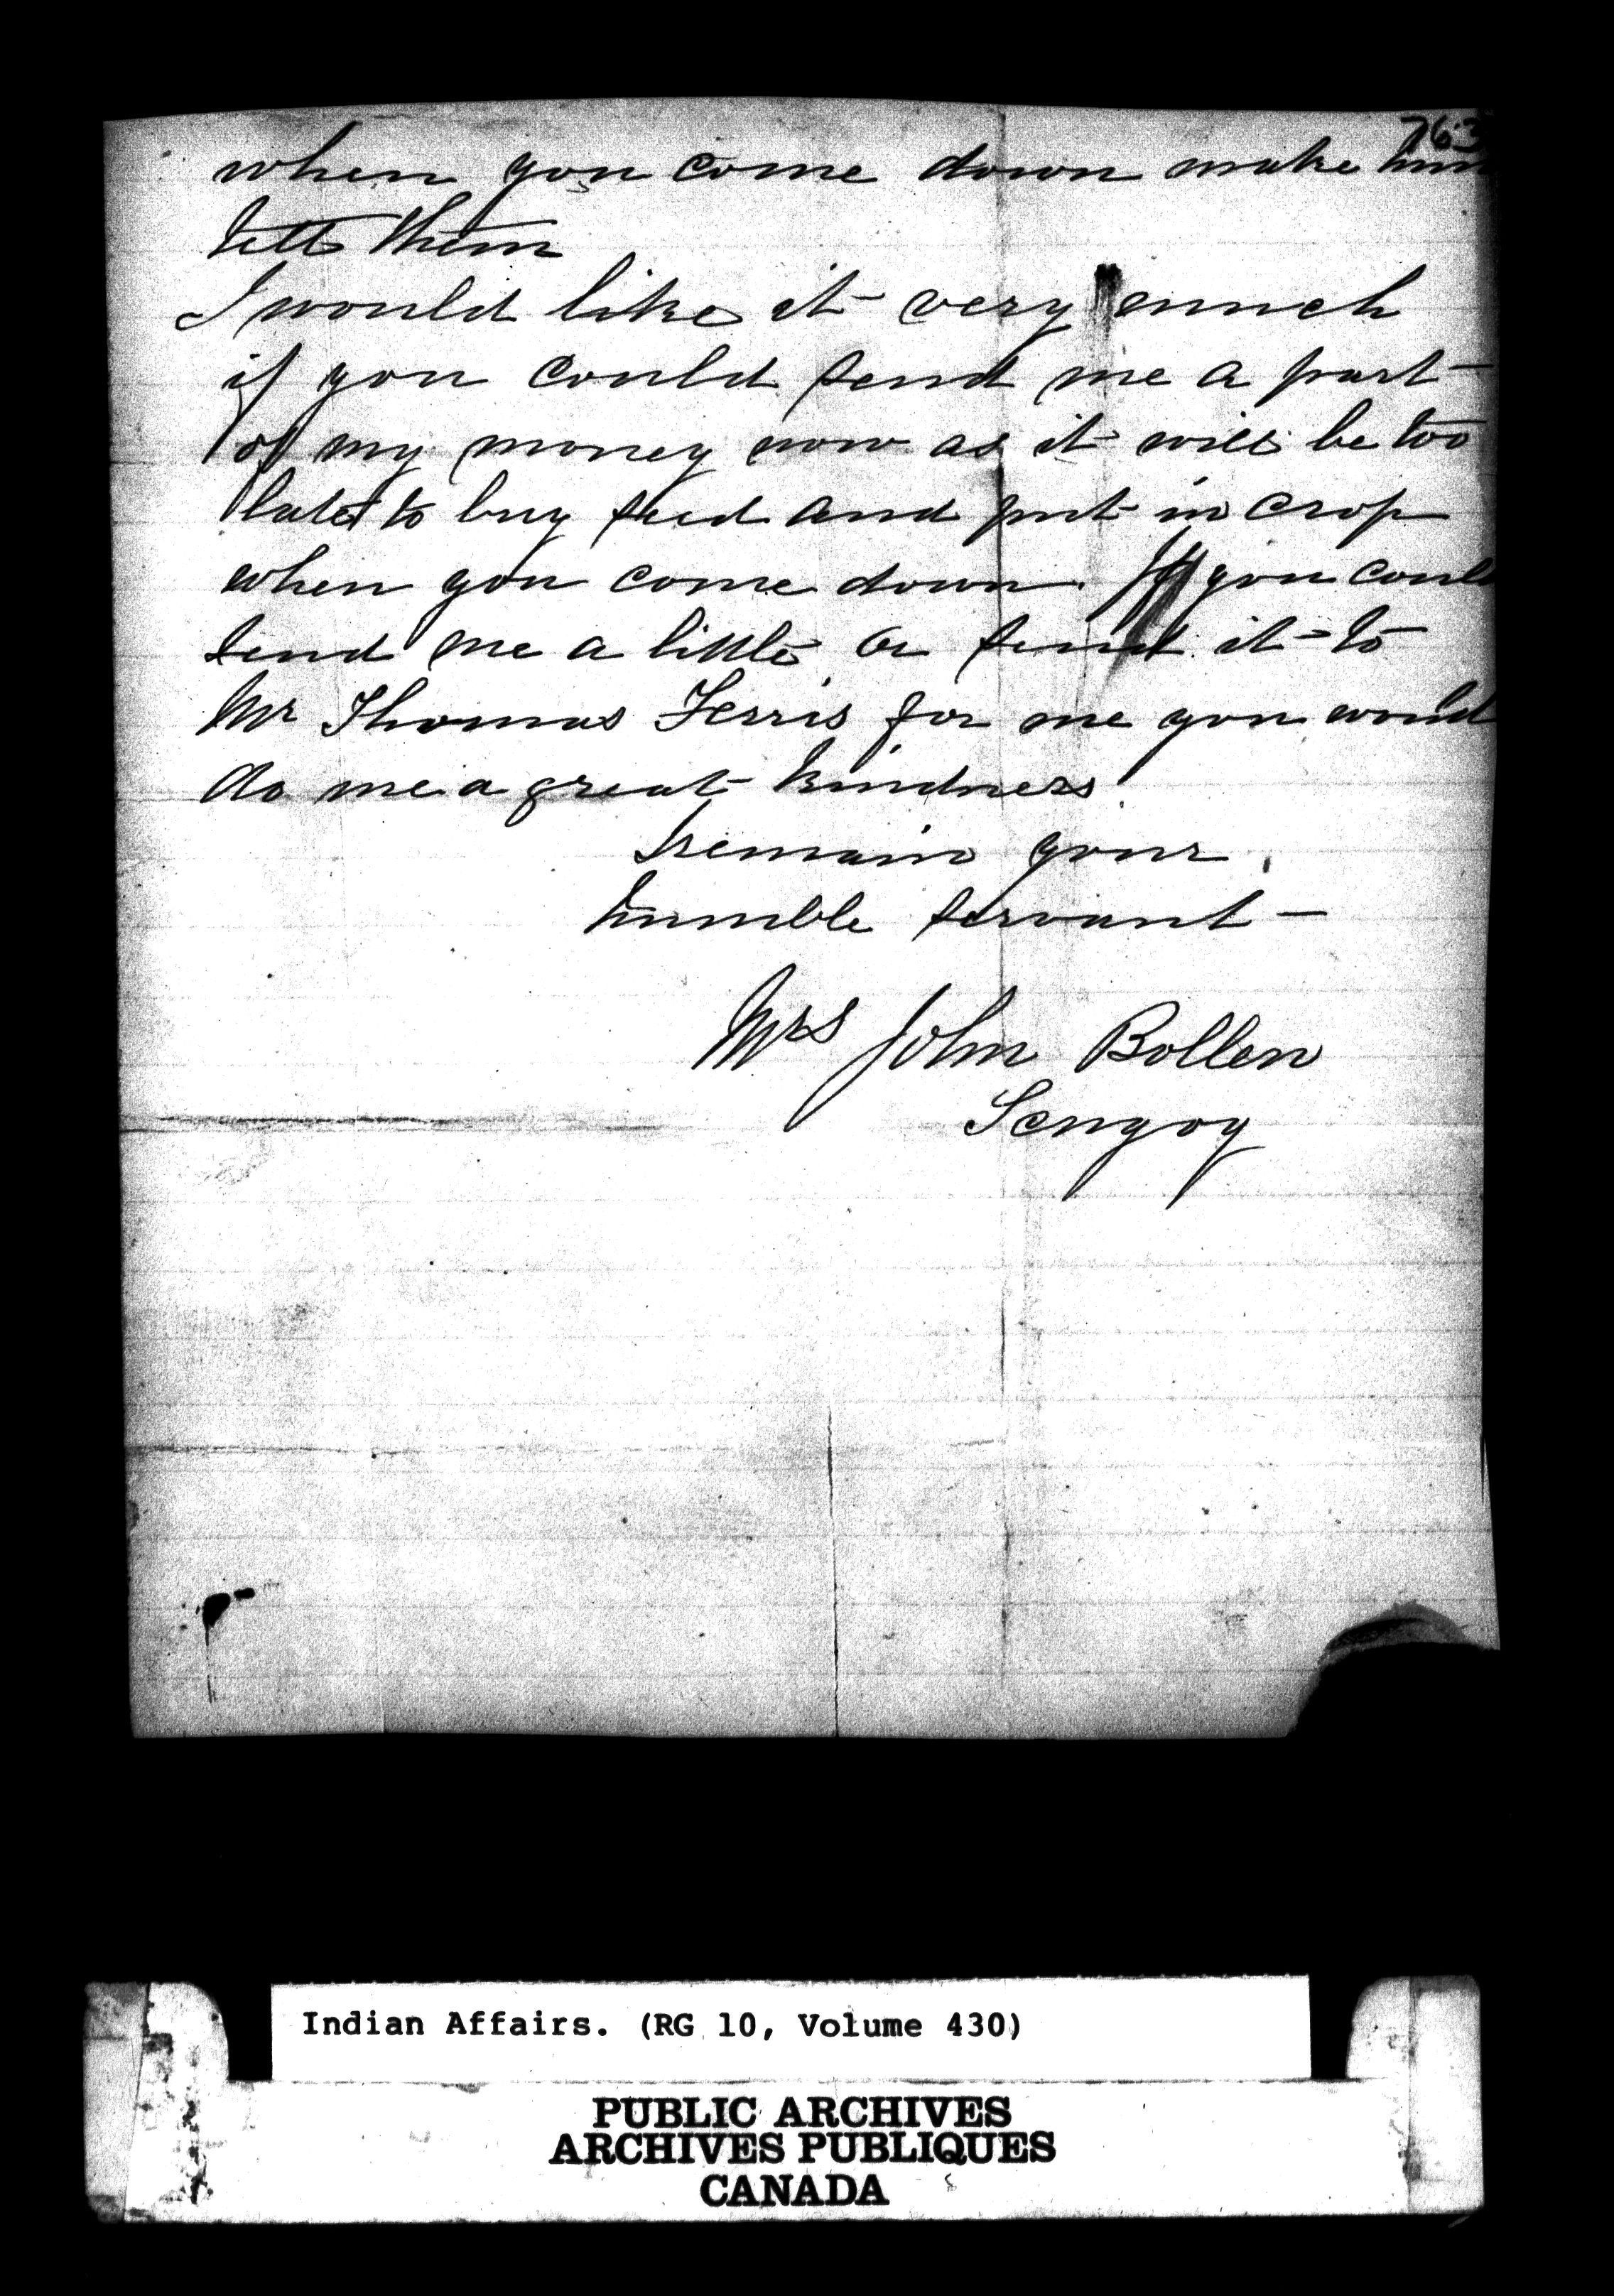 763
when you come down make him
tell them
I would like it very much
if you could send me a part
of my money now as it will be too
late to buy seed and put in crop
when you come down. If you could
send me a little or send it to
Mr Thomas Ferris for me you would
do me a great kindness
I remain your
humble servant
Mrs John Bollen
Indian Affairs. (RG 10, Volume 430)
PUBLIC ARCHIVES
ARCHIVES PUBLIQUES
CANADA